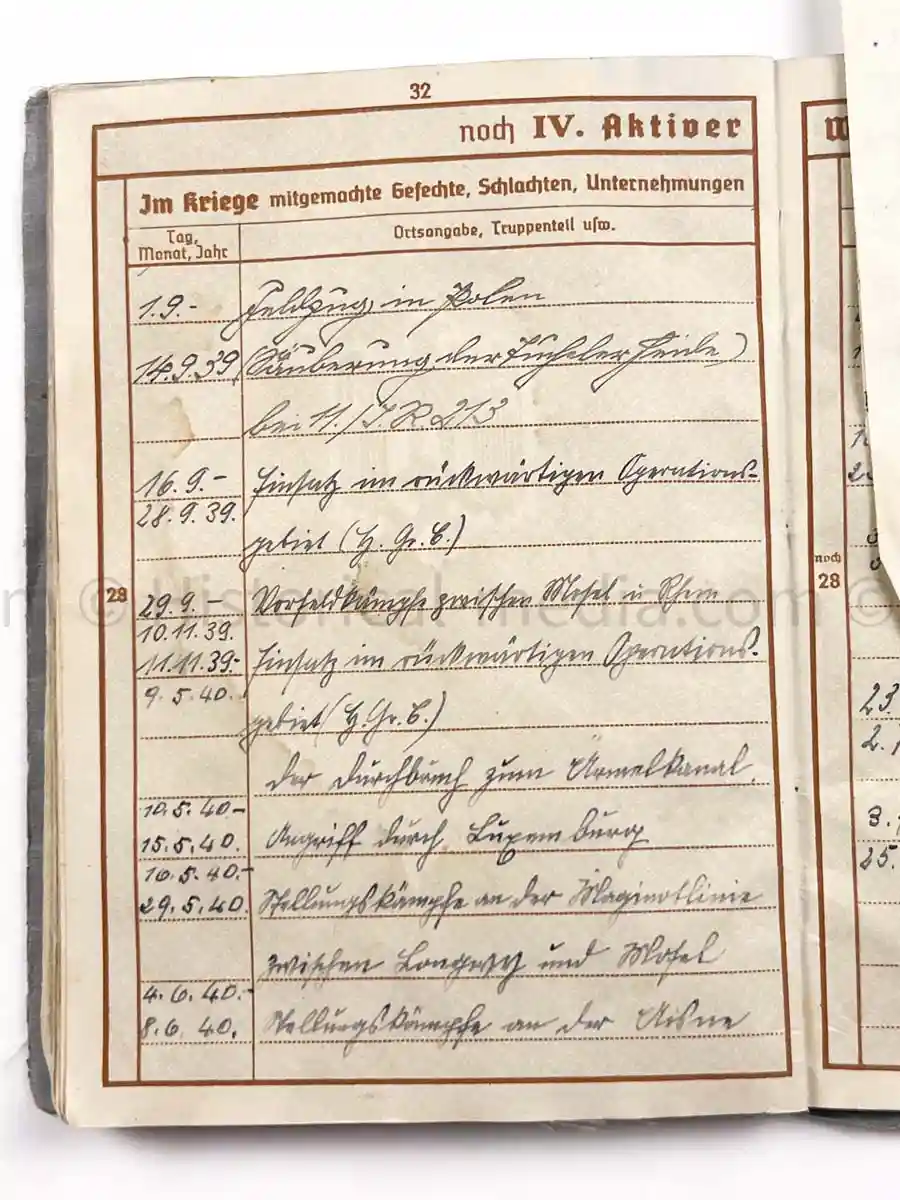 32
noch IV. Aktiver
Im Kriege mitgemachte Gefechte, Schlachten, Unternehmungen
Tag,
Monat, Jahr
Ortsangabe, Truppenteil usw.
1.9.- Feldzug in Polen
14.9.39 (Säuberung der Tucheler Heide)
bei 11./I.R. 213
16.9.- Einsatz im rückwärtigen Operations-
28.9.39.
gebiet (H. Gr. C.)
28
29.9.- Vorfeldkämpfe zwischen Mosel u Rhein
10.11.39.
11.11.39- Einsatz im rückwärtigen Operations-
9.5.40.
gebiet (H. Gr. C.)
Der Durchbruch zum Ärmelkanal.
10.5.40-
15.5.40. Angriff durch Luxemburg
16.5.40.-
29.5.40. Stellungskämpfe an der Maginotlinie
zwischen Longwy und Mosel
4.6.40.-
8.6.40. Stellungskämpfe an der Aisne
noch
28
23
2.
3.
25.
© Historicalmedia.com ©